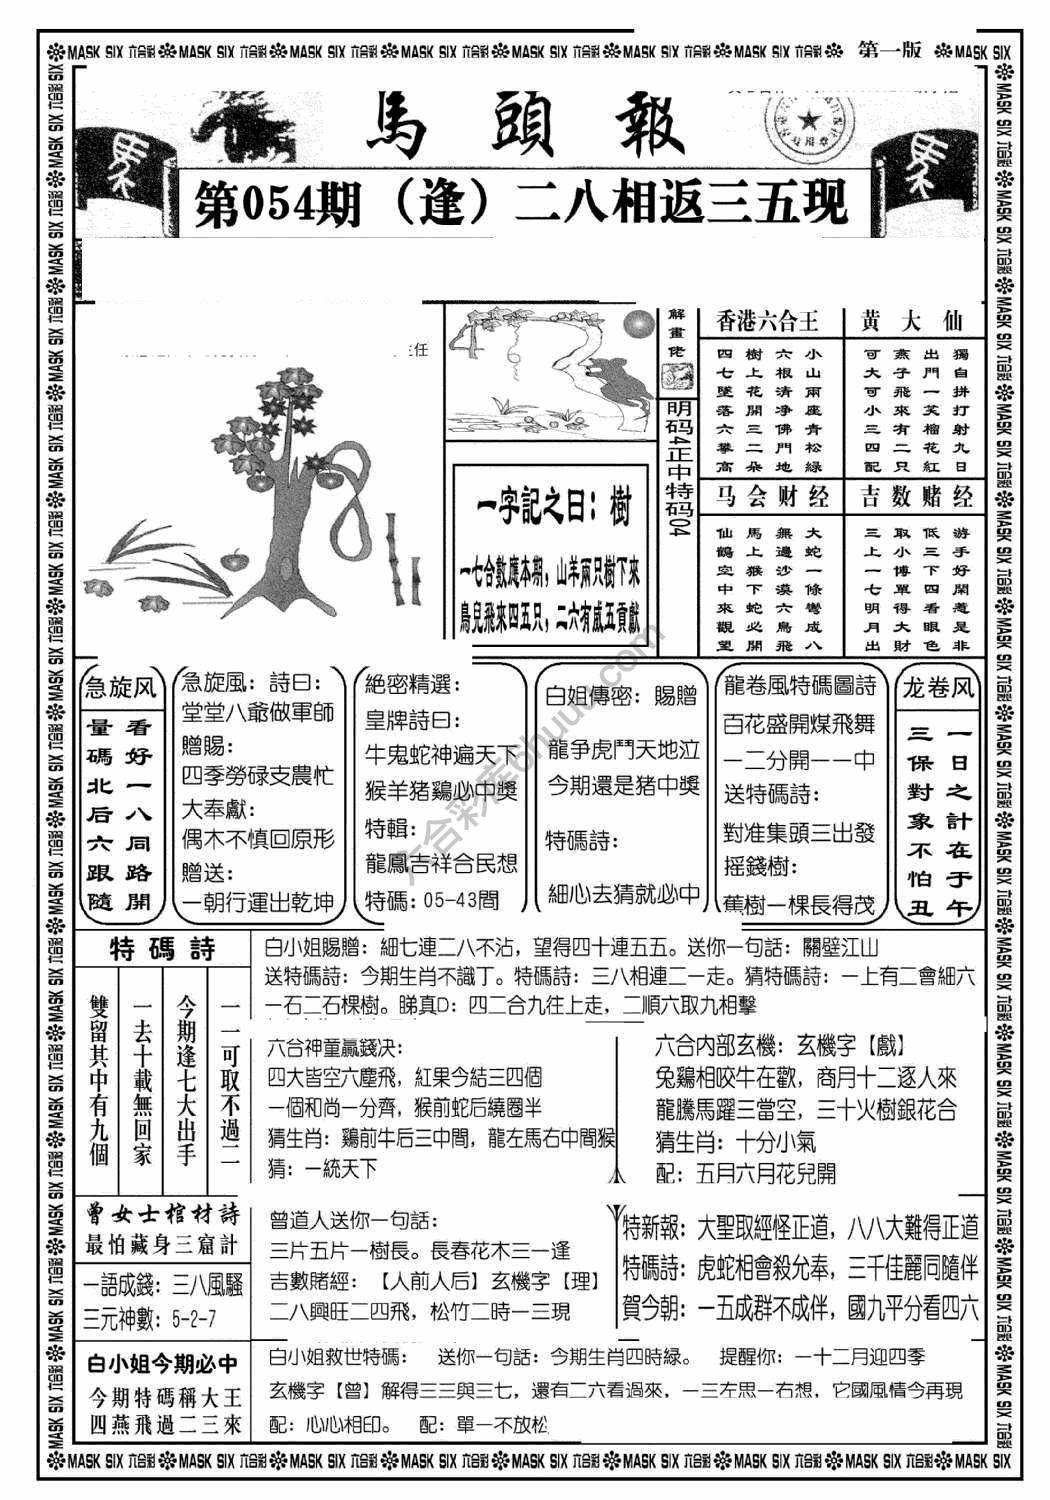 MASK SIX 六合彩 MASK SIX 六合彩 MASK SIX 六合彩 MASK SIX 六合彩 MASK SIX 六合彩 MASK SIX 六合彩 MASK SIX 六合彩 第一版 MASK SIX
馬頭報
第054期（逢）二八相返三五现
主任
解畫佬
明码4正中特码04
一字記之曰：樹
一七合數應本期，山羊兩只樹下來
鳥兒飛來四五只，二六有威五貢獻
香港六合王
小山兩座青松綠
六根清净佛門地
樹上花開三二朵
四七墜落六攀高
黄大仙
獨自拼打射九日
出門一笑榴花紅
燕子飛來有二只
可大可小三四配
马会财经
大蛇一條彎成八
無邊沙漠六鳥飛
馬上猴下蛇必開
仙鶴空中來觀望
吉数赌经
游手好閑惹是非
低三下四看眼色
取小博單得大財
三上一七明月出
急旋风
看好一八同路開
量碼北后六跟隨
急旋風：詩曰：
堂堂八爺做軍師
贈賜：
四季勞碌支農忙
大奉獻：
偶木不慎回原形
贈送：
一朝行運出乾坤
絶密精選：
皇牌詩曰：
牛鬼蛇神遍天下
猴羊猪鷄必中獎
特輯：
龍鳳吉祥合民想
特碼：05-43間
白姐傳密：賜贈
龍争虎鬥天地泣
今期還是猪中獎
特碼詩：
細心去猜就必中
龍卷風特碼圖詩
百花盛開煤飛舞
一二分開一一中
送特碼詩：
對准集頭三出發
摇錢樹：
蕉樹一棵長得茂
龙卷风
一日之計在于午
三保對象不怕丑
六合彩库6huu.com
特碼詩
一一可取不過二
今期逢七大出手
一去十載無回家
雙留其中有九個
白小姐賜贈：細七連二八不沾，望得四十連五五。送你一句話：關壁江山
送特碼詩：今期生肖不識丁。特碼詩：三八相連二一走。猜特碼詩：一上有二會細六
一石二石棵樹。睇真D：四二合九往上走，二順六取九相擊
六合神童贏錢决：
四大皆空六塵飛，紅果今結三四個
一個和尚一分齊，猴前蛇后繞圈半
猜生肖：鷄前牛后三中間，龍左馬右中間猴
猜：一統天下
六合内部玄機：玄機字【戲】
兔鷄相咬牛在歡，商月十二逐人來
龍騰馬躍三當空，三十火樹銀花合
猜生肖：十分小氣
配：五月六月花兒開
曾女士棺材詩
最怕藏身三窟計
一語成錢：三八風騷
三元神數：5-2-7
曾道人送你一句話：
三片五片一樹長。長春花木三一逢
吉數賭經：【人前人后】玄機字【理】
二八興旺二四飛，松竹二時一三現
特新報：大聖取經怪正道，八八大難得正道
特碼詩：虎蛇相會殺允奉，三千佳麗同隨伴
賀今朝：一五成群不成伴，國九平分看四六
白小姐今期必中
今期特碼稱大王
四燕飛過二三來
白小姐救世特碼： 送你一句話：今期生肖四時緑。 提醒你：一十二月迎四季
玄機字【曾】解得三三與三七，還有二六看過來，一三左思一右想，它國風情今再現
配：心心相印。 配：單一不放松
MASK SIX 六合彩 MASK SIX 六合彩 MASK SIX 六合彩 MASK SIX 六合彩 MASK SIX 六合彩 MASK SIX 六合彩 MASK SIX 六合彩 MASK SIX 六合彩 MASK SIX